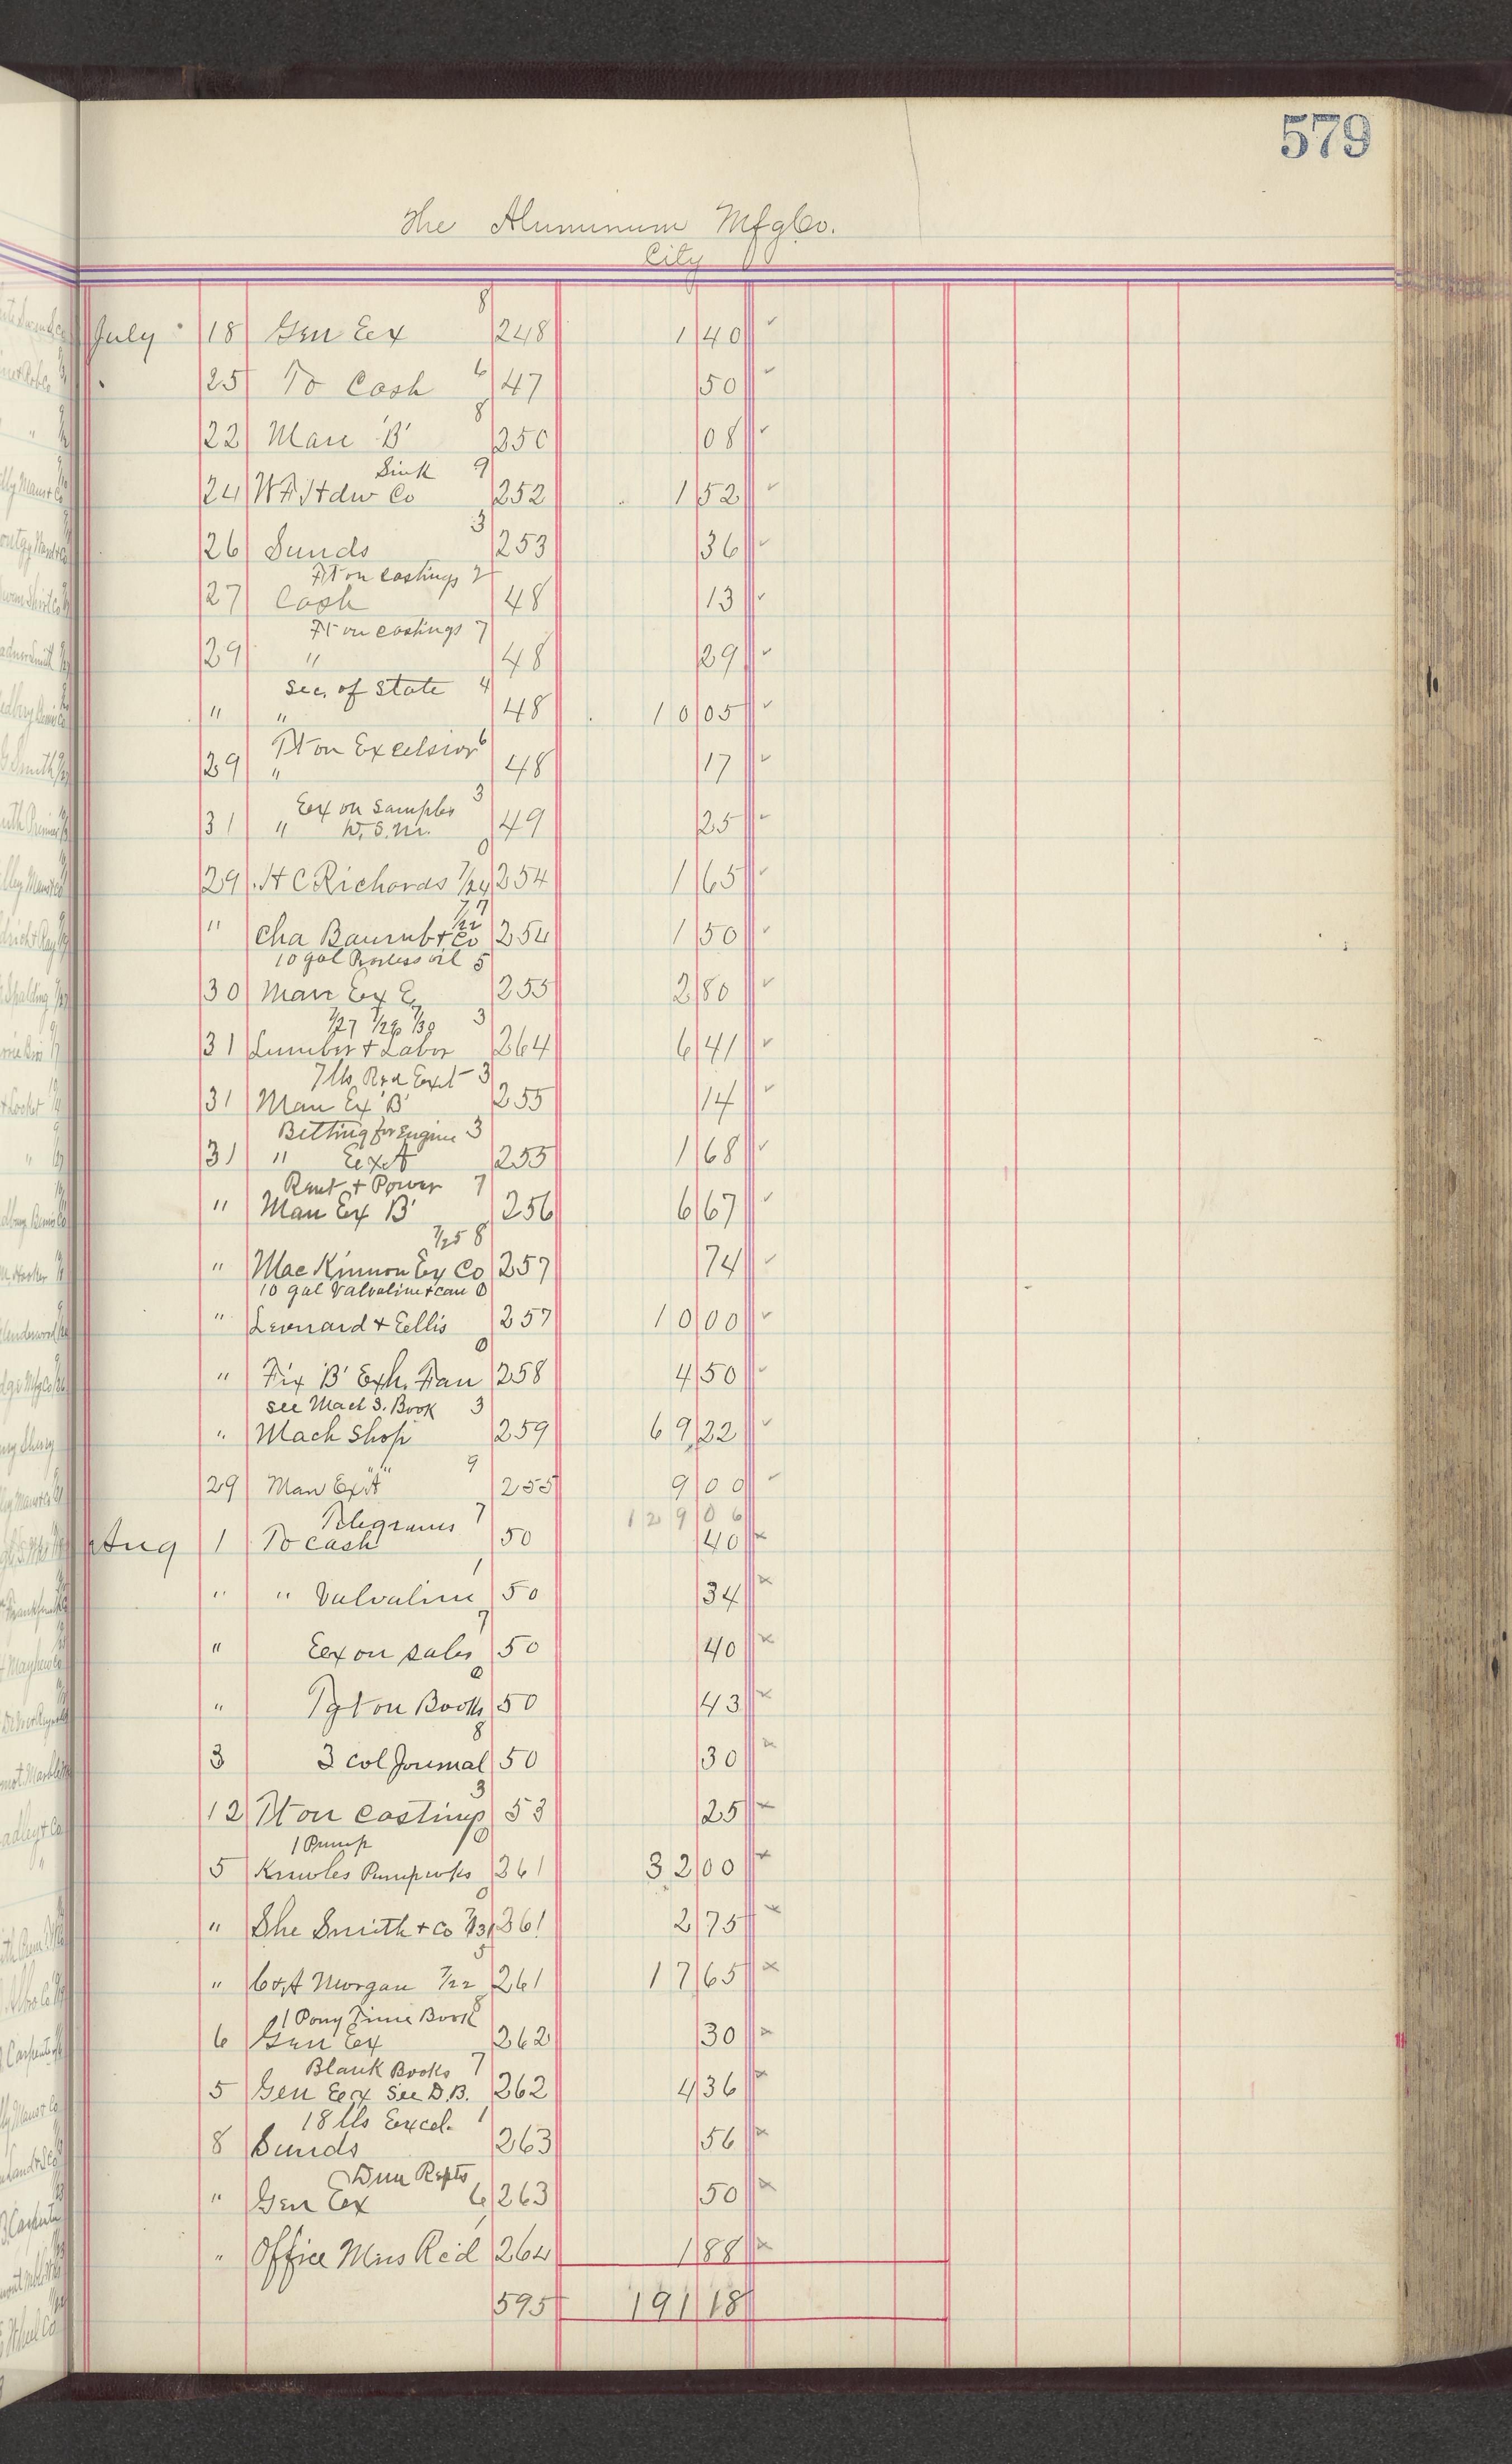 579
The Aluminum Mfg Co.
City
8
July 18 Gen Ex 248 1 40
6
25 To Cash 47 50
8
22 Man 'B' 250 08
Sink 9
24 Hdw Co 252 1 52
3
26 Sunds 253 36
Ft on Castings 2
27 Cash 48 13
Ft on Castings 7
29 " 48 29
Sec. of State 4
" " 48 10 05
Ft on Excelsior 6
29 " 48 17
Ex on Samples 3
31 " W.S.M. 49 25
0
29 H C Richards 7/24 254 1 65
7/22 7
" Cha & Co 254 1 50
10 gal oil 5
30 Man Ex E 255 2 80
7/27 7/29 7/30 3
31 Lumber & Labor 264 6 41
7 lbs Rod 3
31 Man Ex 'B' 255 14
Belting for Engine 3
31 " Ex A 255 1 68
Rent + Power 7
" Man Ex B' 256 6 67
7/25 8
" Mac Kinnon Ex Co 257 74
10 gal Valvaline + can 0
" Leonard & Ellis 257 10 00
0
" Fix 'B' Exh. Fan 258 4 50
see Mach S. Book 3
" Mach Shop 259 69 22
9
29 Man Ex "A" 255 9 00
129 06
Telegrams 7
Aug 1 To Cash 50 40
1
" " Valvaline 50 34
7
" Ex on sales 50 40
0
" Fgt on Books 50 43
8
3 3 col Journal 50 30
3
12 Ft on Castings 53 25
1 Pump 0
5 Knowles Pump wks 261 32 00
0
" She Smith & Co 7/31 261 2 75
5
" C & A Morgan 7/22 261 17 65
1 Pony Time Book 8
6 Gen Ex 262 30
Blank Books 7
5 Gen Ex See D.B. 262 4 36
18 lbs Excel. 1
8 Sunds 263 56
Dun Repts
" Gen Ex 6 263 50
" Office Mns Rc'd 264 1 88
595 191 18